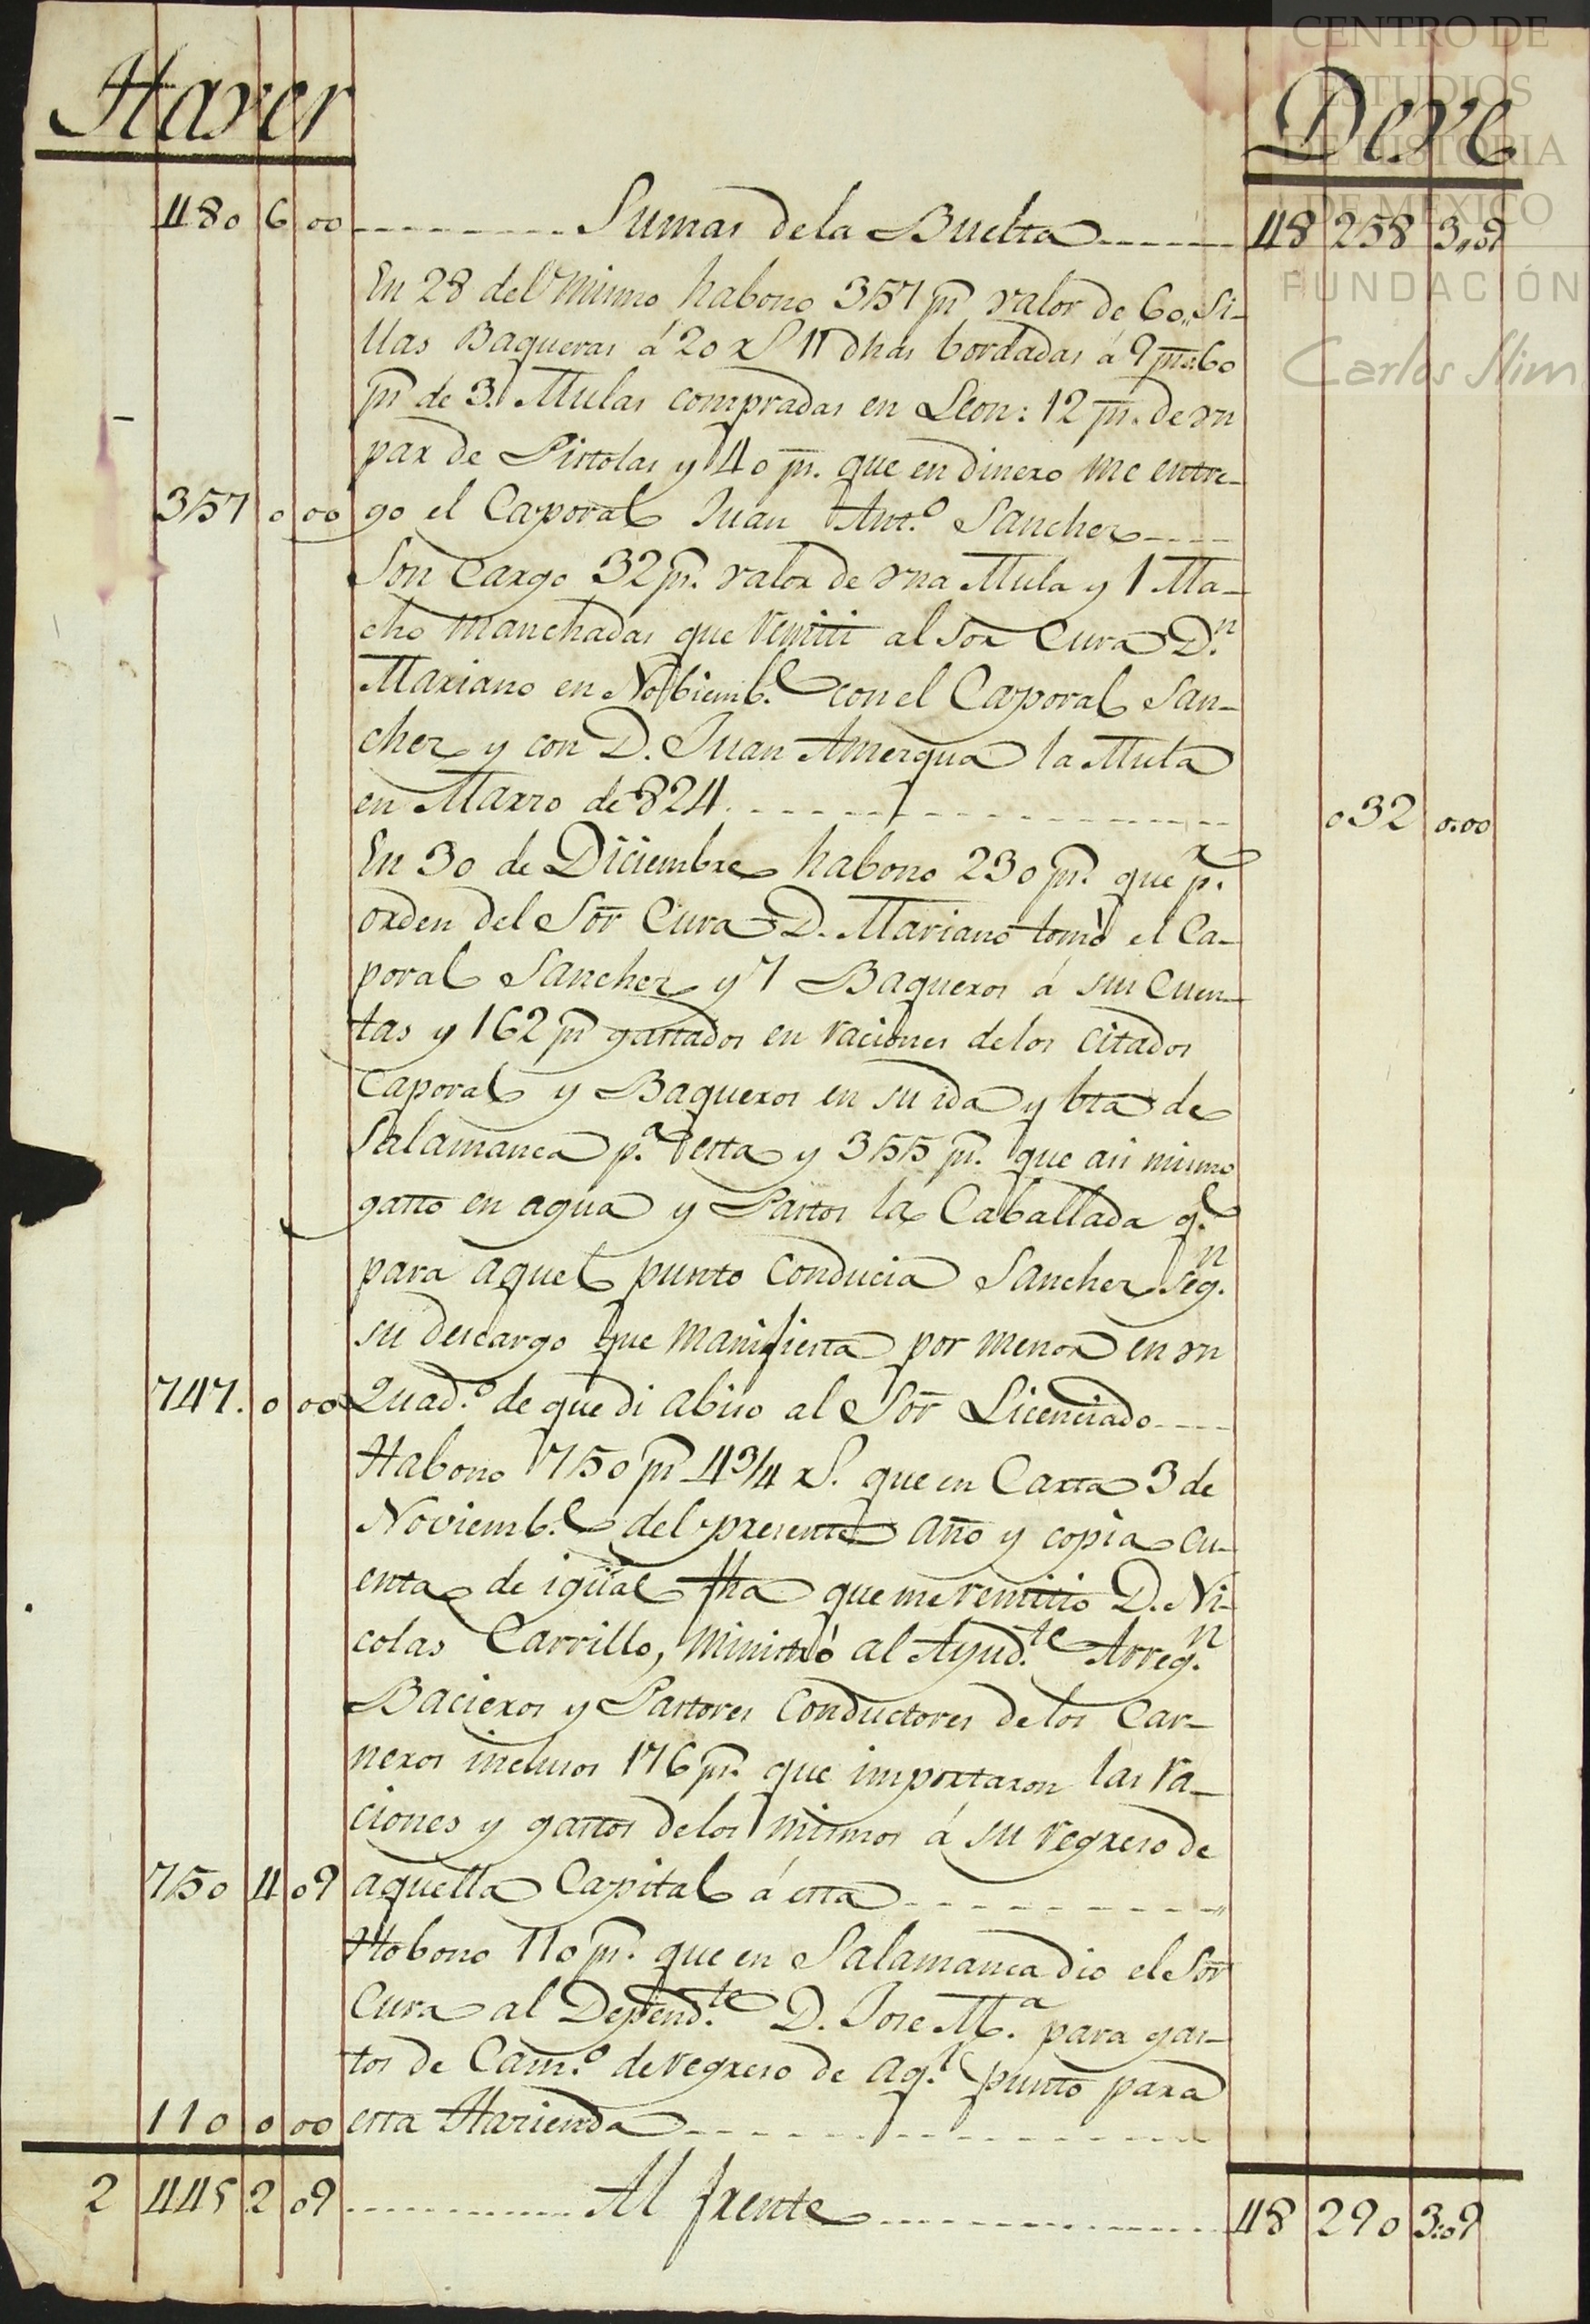 Haver
Deve
CENTRO DE
ESTUDIOS
DE HISTORIA
DE MEXICO
FUNDACIÓN
Carlos Slim
480 6 00 Sumas dela Buelta 48 258 3,,09
En 28 del mismo habono 357 ps valor de 60,, Si-
llas Baqueras á 20 rs 11 dhas bordadas á 9 ps: 60
ps de 3. Mulas compradas en Leon: 12 ps. de vn
par de Pistolas y 40 ps. que en dinero me entre-
357 0 00 go el Caporal Juan Anto. Sanchez
Son Cargo 32 ps. valor de vna Mula y 1 Ma-
cho manchadas que remiti al Sor Cura Dn.
Mariano en Nobiembe. con el Caporal San-
chez y con D. Juan Amezqua la Mula
en Marzo de 824. 032 0.00
En 30 de Diciembre habono 230 ps. que pr.
orden del Sor Cura D. Mariano tomó el Ca-
poral Sanchez y 7 Baqueros á sus Cuen-
tas y 162 ps gastados en raciones de los citados
Caporal y Baqueros en su ida y bta de
Salamanca pa. esta y 355 ps. que asi mismo
gasto en agua y Pastos la Caballada qe.
para aquel punto Conducia Sanchez Segn.
su descargo que manifiesta por menor en vn
747. 0 00 Quado. de que di abiso al Sor Licenciado
Habono 750 ps 4 3/4 rs. que en Carta 3 de
Noviembe. del presente año y copia cu-
enta de igüal fha que me remitio D. Ni-
colas Carrillo, ministró al Ayudte. Arregn.
Bacieros y Pastores Conductores delos Car-
neros inclusos 176 ps. que importaron las ra-
ciones y gastos delos mismos á su regreso de
750 4 09 aquella Capital á esta
Habono 110 ps. que en Salamanca dio el Sor
Cura al Dependte. D. Jose Ma. para gas-
tos de Camo. de regreso de aql. punto para
110 0 00 esta Hazienda
2 445 2 09 Al frente 48 290 3:09